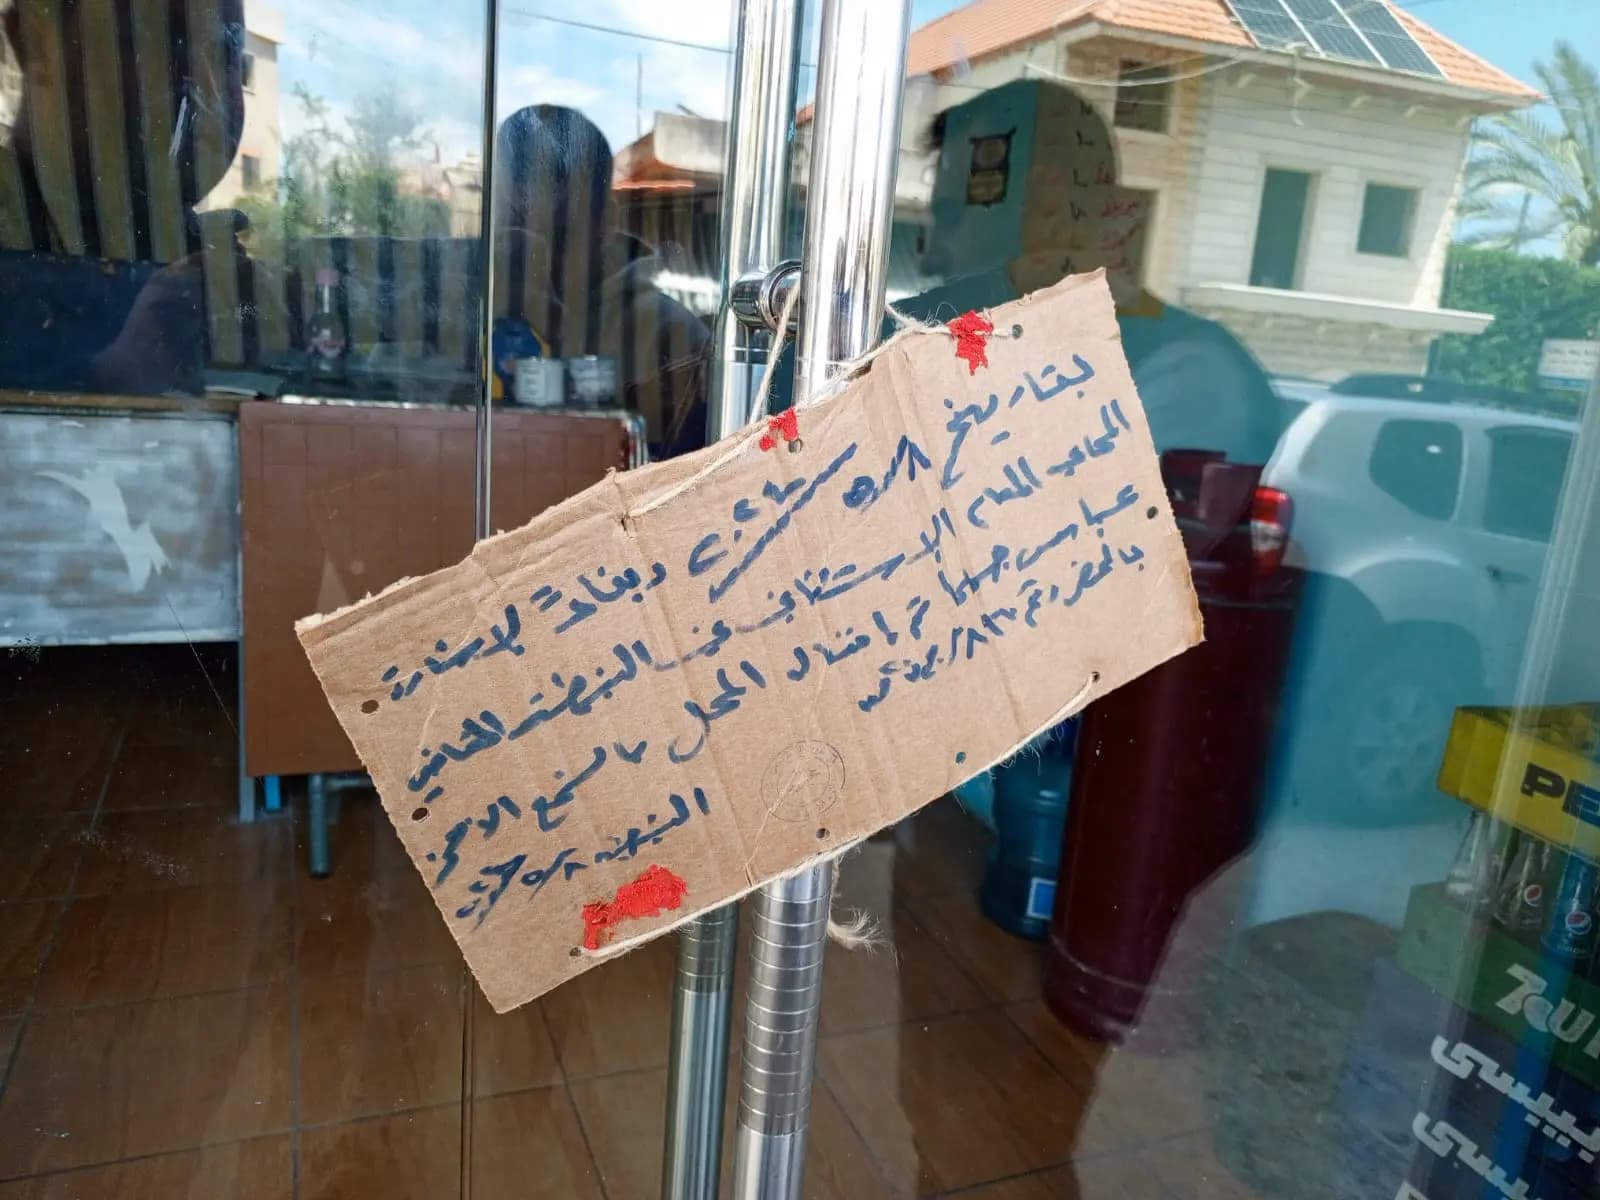 بتاريخ ٥/٨ وبناءً لإشارة
المحامي العام الاستئنافي في النبطية القاضي
عباس جحا تم اقفال المحل بالشمع الاحمر
بالمحضر رقم
النبطية ٥/٨
PE
7UP
بيبسي